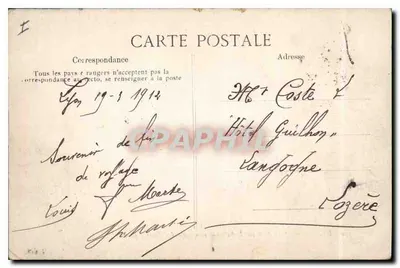 I
CARTE POSTALE
Correspondance
Adresse
Tous les pays e rangers n'acceptent pas la
correspondance au recto, se renseigner à la poste
19-3 1912
Souvenir de fin
de voyage
Louis
Mr Coste L
Hôtel Guilhon
Langogne
Lozère
CPAPHIL